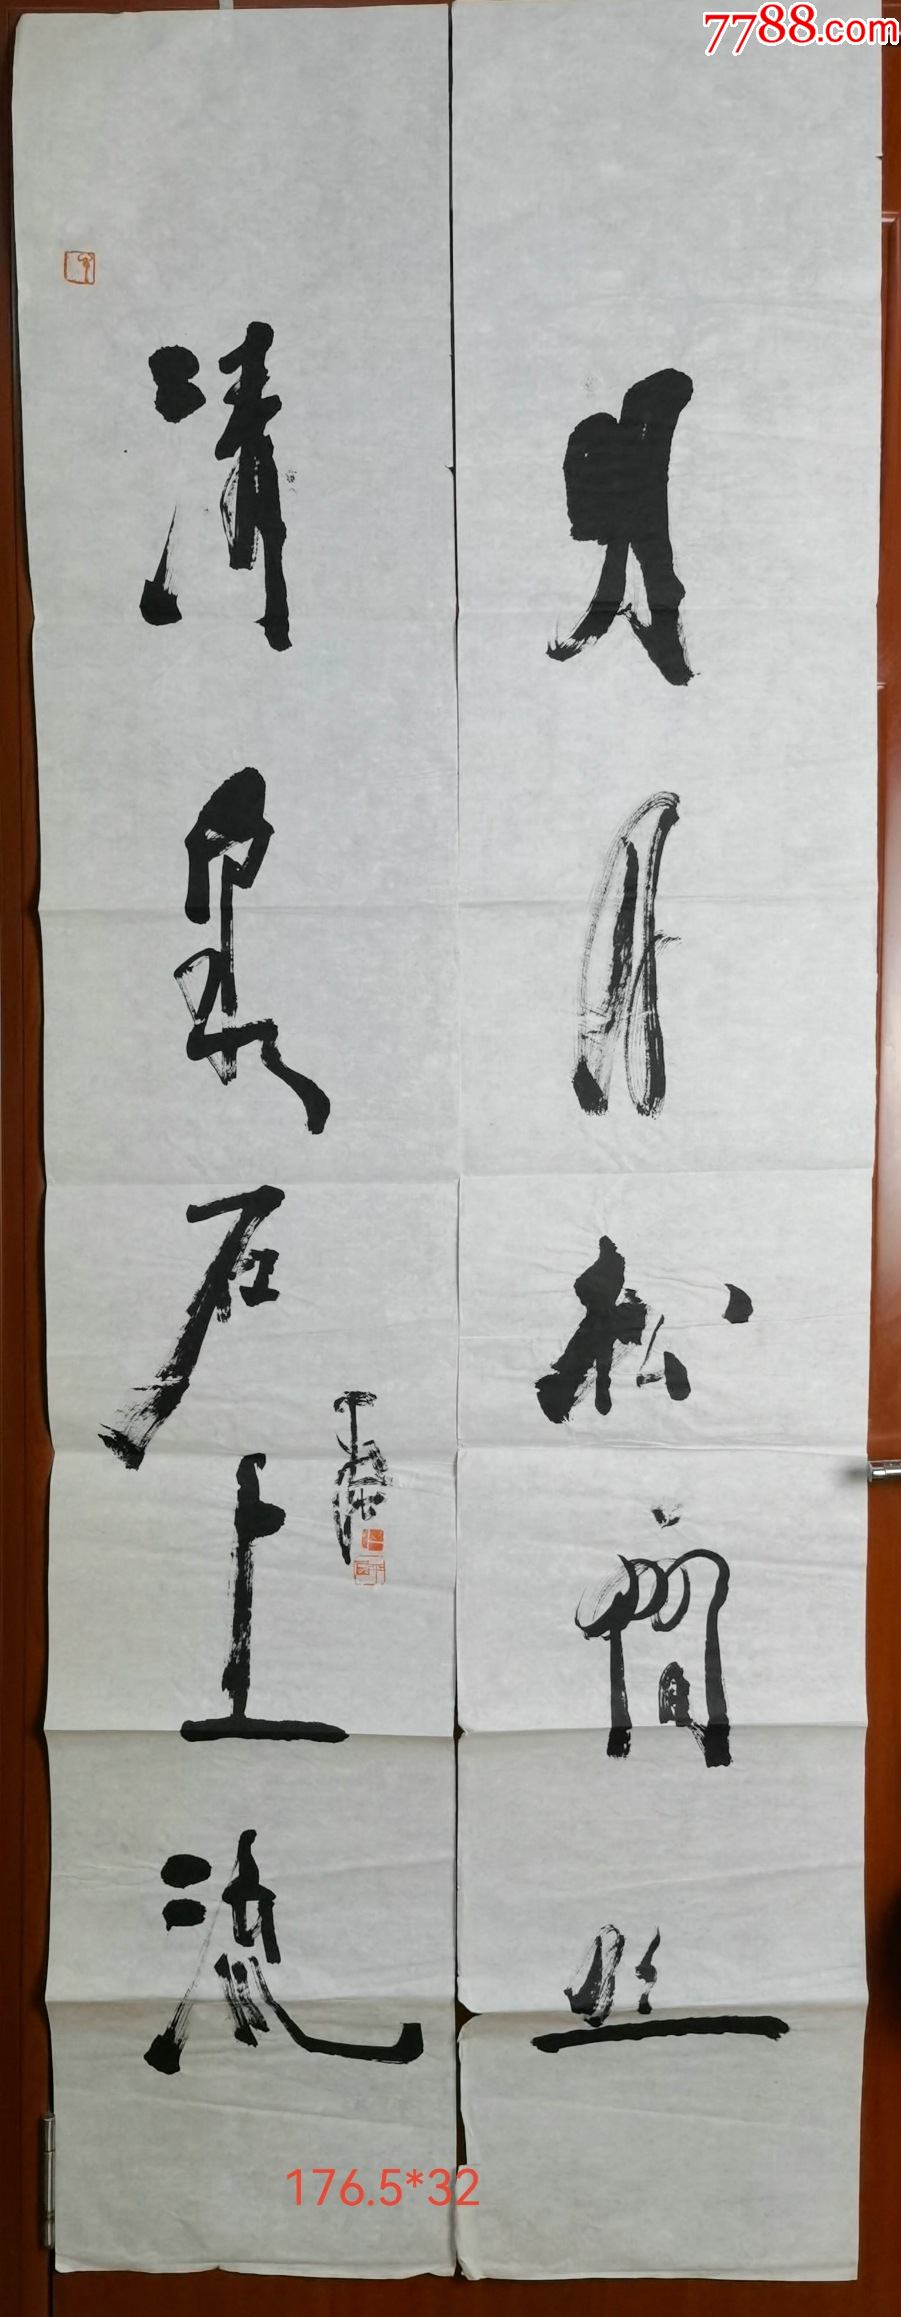 7788.com
明月松间照
清泉石上流
176.5*32